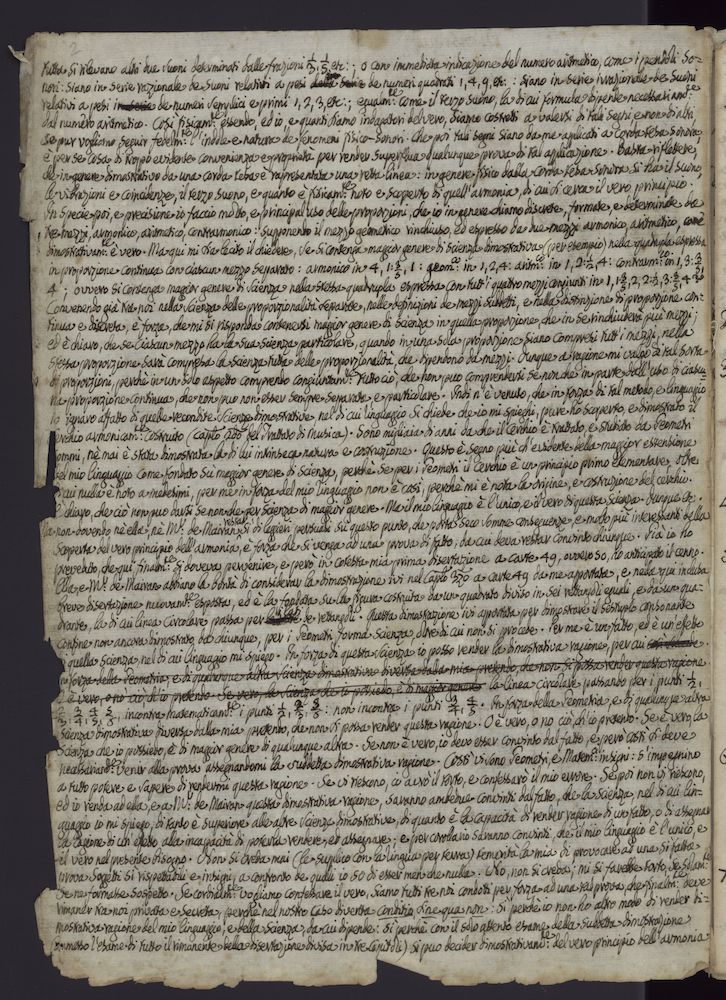 2
tutta si rilevano altri due suoni determinati dalle frazioni 1/3, 1/5, etc.; o con immediata indicazione del numero aritmetico, come i pendoli so=
nori: siano in serie razionale de suoni relativi a pesi de numeri quadrati 1, 4, 9, etc.: siano in serie irrazionale de suoni
relativi a pesi de numeri semplici e primi 1, 2, 3, etc.; egualm.te come il terzo suono, la di cui formula dipende necessariam.te
dal numero aritmetico. Così fisicam.te essendo, ed io, e quanti siamo indagatori del vero, siamo costretti a valersi di tali segni, e non d'altri
se pur vogliamo seguir fedelm.te l'indole e natura de fenomeni fisico-sonori. Che poi tali segni siano da me applicati a corda tesa sonora
è per se cosa di troppo evidente convenienza e proprietà per render superflua qualunque prova di tal applicazione. Basta riflettere,
che in genere dimostrativo da una corda tesa è rapresentata una retta linea: in genere fisico dalla corda tesa sonora si ha il suono,
le vibrazioni e coincidenze, il terzo suono, e quanto è fisicam.te noto e scoperto di quell'armonia, di cui si cerca il vero principio.
In specie poi, e precisione io faccio molto, e principal uso delle proporzioni, che io in genere chiamo discrete, formate, e determinate da
tre mezzi, armonico, aritmetico, contrarmonico: supponento il mezzo geometrico vinchiuso, ed espresso da due mezzi armonico, aritmetico, com'è
dimostrativam.te è vero. Ma qui mi sia lecito il chiedere, se si contenga maggior genere di scienza dimostrativa (per esempio) nella quadrupla espressa
in proporzione continua con ciascun mezzo separato: armonico in 4, 1 3/5, 1: geom.co in 1, 2, 4: aritm.co in 1, 2 1/2, 4: contrarm.co in 1, 3 2/5,
4; ovvero si contenga maggior genere di scienza nella stessa quadrupla espressa con tutt'i quattro mezzi congiunti in
Convenendo già tra noi nella scienza delle proporzionalità separate, nelle definizioni de mezzi suddetti, e nella distinzione di proporzione con=
tinua e discreta, è forza, che mi si risponda contenersi maggior genere di scienza in quella proporzione, che in se rinchiuderà più mezzi;
ed è chiaro, che se ciascun mezzo ha la sua scienza particolare, quando in una sola proporzione siano compresi tutt'i mezzi, nella
stessa proporzione sarà compresa la scienza tutta delle proporzionalità, che dipendono da mezzi. Dunque a ragione mi valgo di tal sorta
di proporzioni, perchè in un solo aspetto comprendo congiuntam.te tutto ciò, che non può comprendersi se non che in parte dall'uso di ciascu=
na proporzione continua, che non può non esser sempre separata, e particolare. Indi n'è venuto, che in forza di tal metodo, e linguaggio
io ignaro affatto di quelle recondite scienze dimostrative, nel di cui linguaggio si chiede che io mi spieghi, pure ho scoperto, e dimostrato il
cerchio armonicam.te costruito (Capito 2do del Trattato di Musica). Sono migliaia d'anni da che il cerchio è trattato, e studiato da Geometri
sommi, nè mai è stata dimostrata la di lui intrinseca natura e costruzione. Questo è segno più ch'evidente della maggior estensione
del mio linguaggio come fondato su maggior genere di scienza, perchè se per i Geometri il cerchio è un principio primo elementare, oltre
di cui nulla è noto a medesimi, per me in forza del mio linguaggio non è così, perchè mi è nota la origine, e costruzione del cerchio.
è chiaro, che ciò non può darsi se non che per scienza di maggior genere. Ma il mio linguaggio è l'unico, e il vero di questa scienza. Dunque etc.
Ma non dovendo nè ella, nè M.r de Mairan restar sì di leggieri persuasi su questo punto, che porta seco somme conseguenze, e molto più interessanti della
scoperta del vero principio dell'armonia, è forza che si venga ad una prova di fatto, da cui deva restar convinto chiunque. Già io ho
preveduto, che qui finalm.te si doveva pervenire, e però in cotesta mia prima dissertazione a carte 49, ovvero 50, ho anticipato il cenno.
Ella, e M.r de Mairan abbiano la bontà di considerar la dimostrazione ivi nel Capito 3zo a carte 49 da me apportata, e nella qui inclusa
breve dissertazione nuovam.te esposta, ed è la fondata su la figura costruita da un quadrato diviso in sei rettangoli eguali, e da un qua=
drante, la di cui linea circolare passa per i lati de rettangoli. Questa dimostrazione ivi apportata per dimostrare il sestuplo consonante
confine non ancora dimostrato da chiunque, per i Geometri forma scienza, oltre di cui non si procede. Per me è un fatto, ed è un effetto
di quella scienza, nel di cui linguaggio mi spiego. In forza di questa scienza io posso render la dimostrativa ragione, per cui
in forza della Geometria, e di qualunque altra scienza dimostrativa diversa dalla mia pretendo, che non si possa render questa ragione
O è vero, o no ciò ch'io pretendo. Se è vero, la scienza che io possiedo, è di maggior genere la linea circolare passando per i punti 1/2,
2/3, 3/4, 4/5, 5/6, incontra matematicam.te i punti non incontra i punti In forza della Geometria, e di qualunque altra
scienza dimostrativa diversa dalla mia pretendo, che non si possa render questa ragione. O è vero, o no ciò ch'io pretendo. Se è vero, la
scienza che io possiedo, è di maggior genere di qualunque altra. Se non è vero, io devo esser convinto dal fatto, e però così si deve
necessariam.te venir alla prova assegnandomi la suddetta dimostrativa ragione. Costì vi sono Geometri, e Matem.ci insigni: s'impegnino
a tutto potere e sapere di rendermi questa ragione. Se vi riescono, io avrò il torto, e confessarò il mio errore. Se poi non vi riescono,
ed io renda ad ella, e a M.r de Mairan questa dimostrativa ragione, saranno ambedue convinti dal fatto, che la scienza, nel di cui lin=
guaggio io mi spiego, di tanto è superiore alle altre scienze dimostrative, di quanto è la capacità di render ragione di un fatto, o di assegnar
la cagione di un effetto alla incapacità di poterla rendere, ed assegnare; e per corolario saranno convinti, che il mio linguaggio è l'unico, e
il vero nel presente bisogno. O non si creda mai (la supplico con la lingua per terra) temerità la mia di provocare ad una sì fatta
prova soggetti sì rispettabili e insigni, a confronto de quali io so di esser meno che nulla. No, non si creda; mi si farebbe torto, se solam.te
se ne formasse sospetto. Se cordialm.te vogliamo confessare il vero, siamo tutti tre noi condotti per forza ad una tal prova, che finalm.te deve
rimaner tra noi privata e secreta, perchè nel nostro caso diventa conditio sine qua non: sì perchè io non ho altro modo di render di=
mostrativa ragione del mio linguaggio, e della scienza, da cui dipende: sì perchè con il solo attento esame della suddetta dimostrazione
ommesso l'esame di tutto il rimanente della dissertazione divisa in tre Capitoli) si può decider dimostrativam.te del vero principio dell'armonia